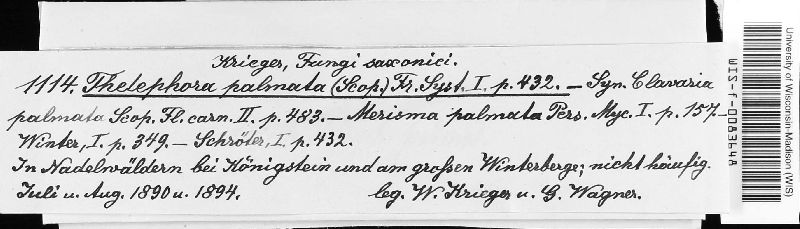 Krieger, Fungi saxonici.
1114. Thelephora palmata (Scop.) Fr. Syst. I. p. 432. – Syn. Clavaria
palmata Scop. Fl. carn. II. p. 483. – Merisma palmata Pers. Myc. I. p. 157. –
Winter, I. p. 349. – Schröter, I. p. 432.
In Nadelwäldern bei Königstein und am großen Winterberge; nicht häufig.
Juli u. Aug. 1890 u. 1894. leg. W. Krieger u. G. Wagner.
WIS-F-0083644
University of Wisconsin-Madison (WIS)